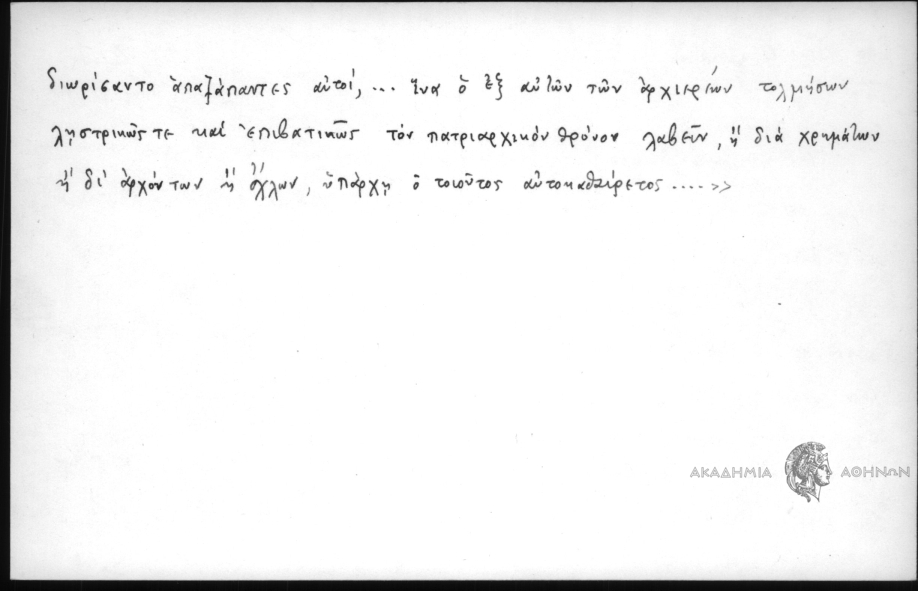 διωρίσαντο ἁπαξάπαντες αὐτοί, ... ἵνα ὁ ἐξ αὐτῶν τῶν ἀρχιερέων τολμήσων
λῃστρικῶς τε καί ἐπιβατικῶς τόν πατριαρχικόν θρόνον λαβεῖν, ἤ διά χρημάτων
ἤ δι' ἀρχόντων ἤ ὄχλων, ὑπάρχῃ ὁ τοιοῦτος αὐτοκαθαίρετος .... >>
ΑΚΑΔΗΜΙΑ ΑΘΗΝΩΝ